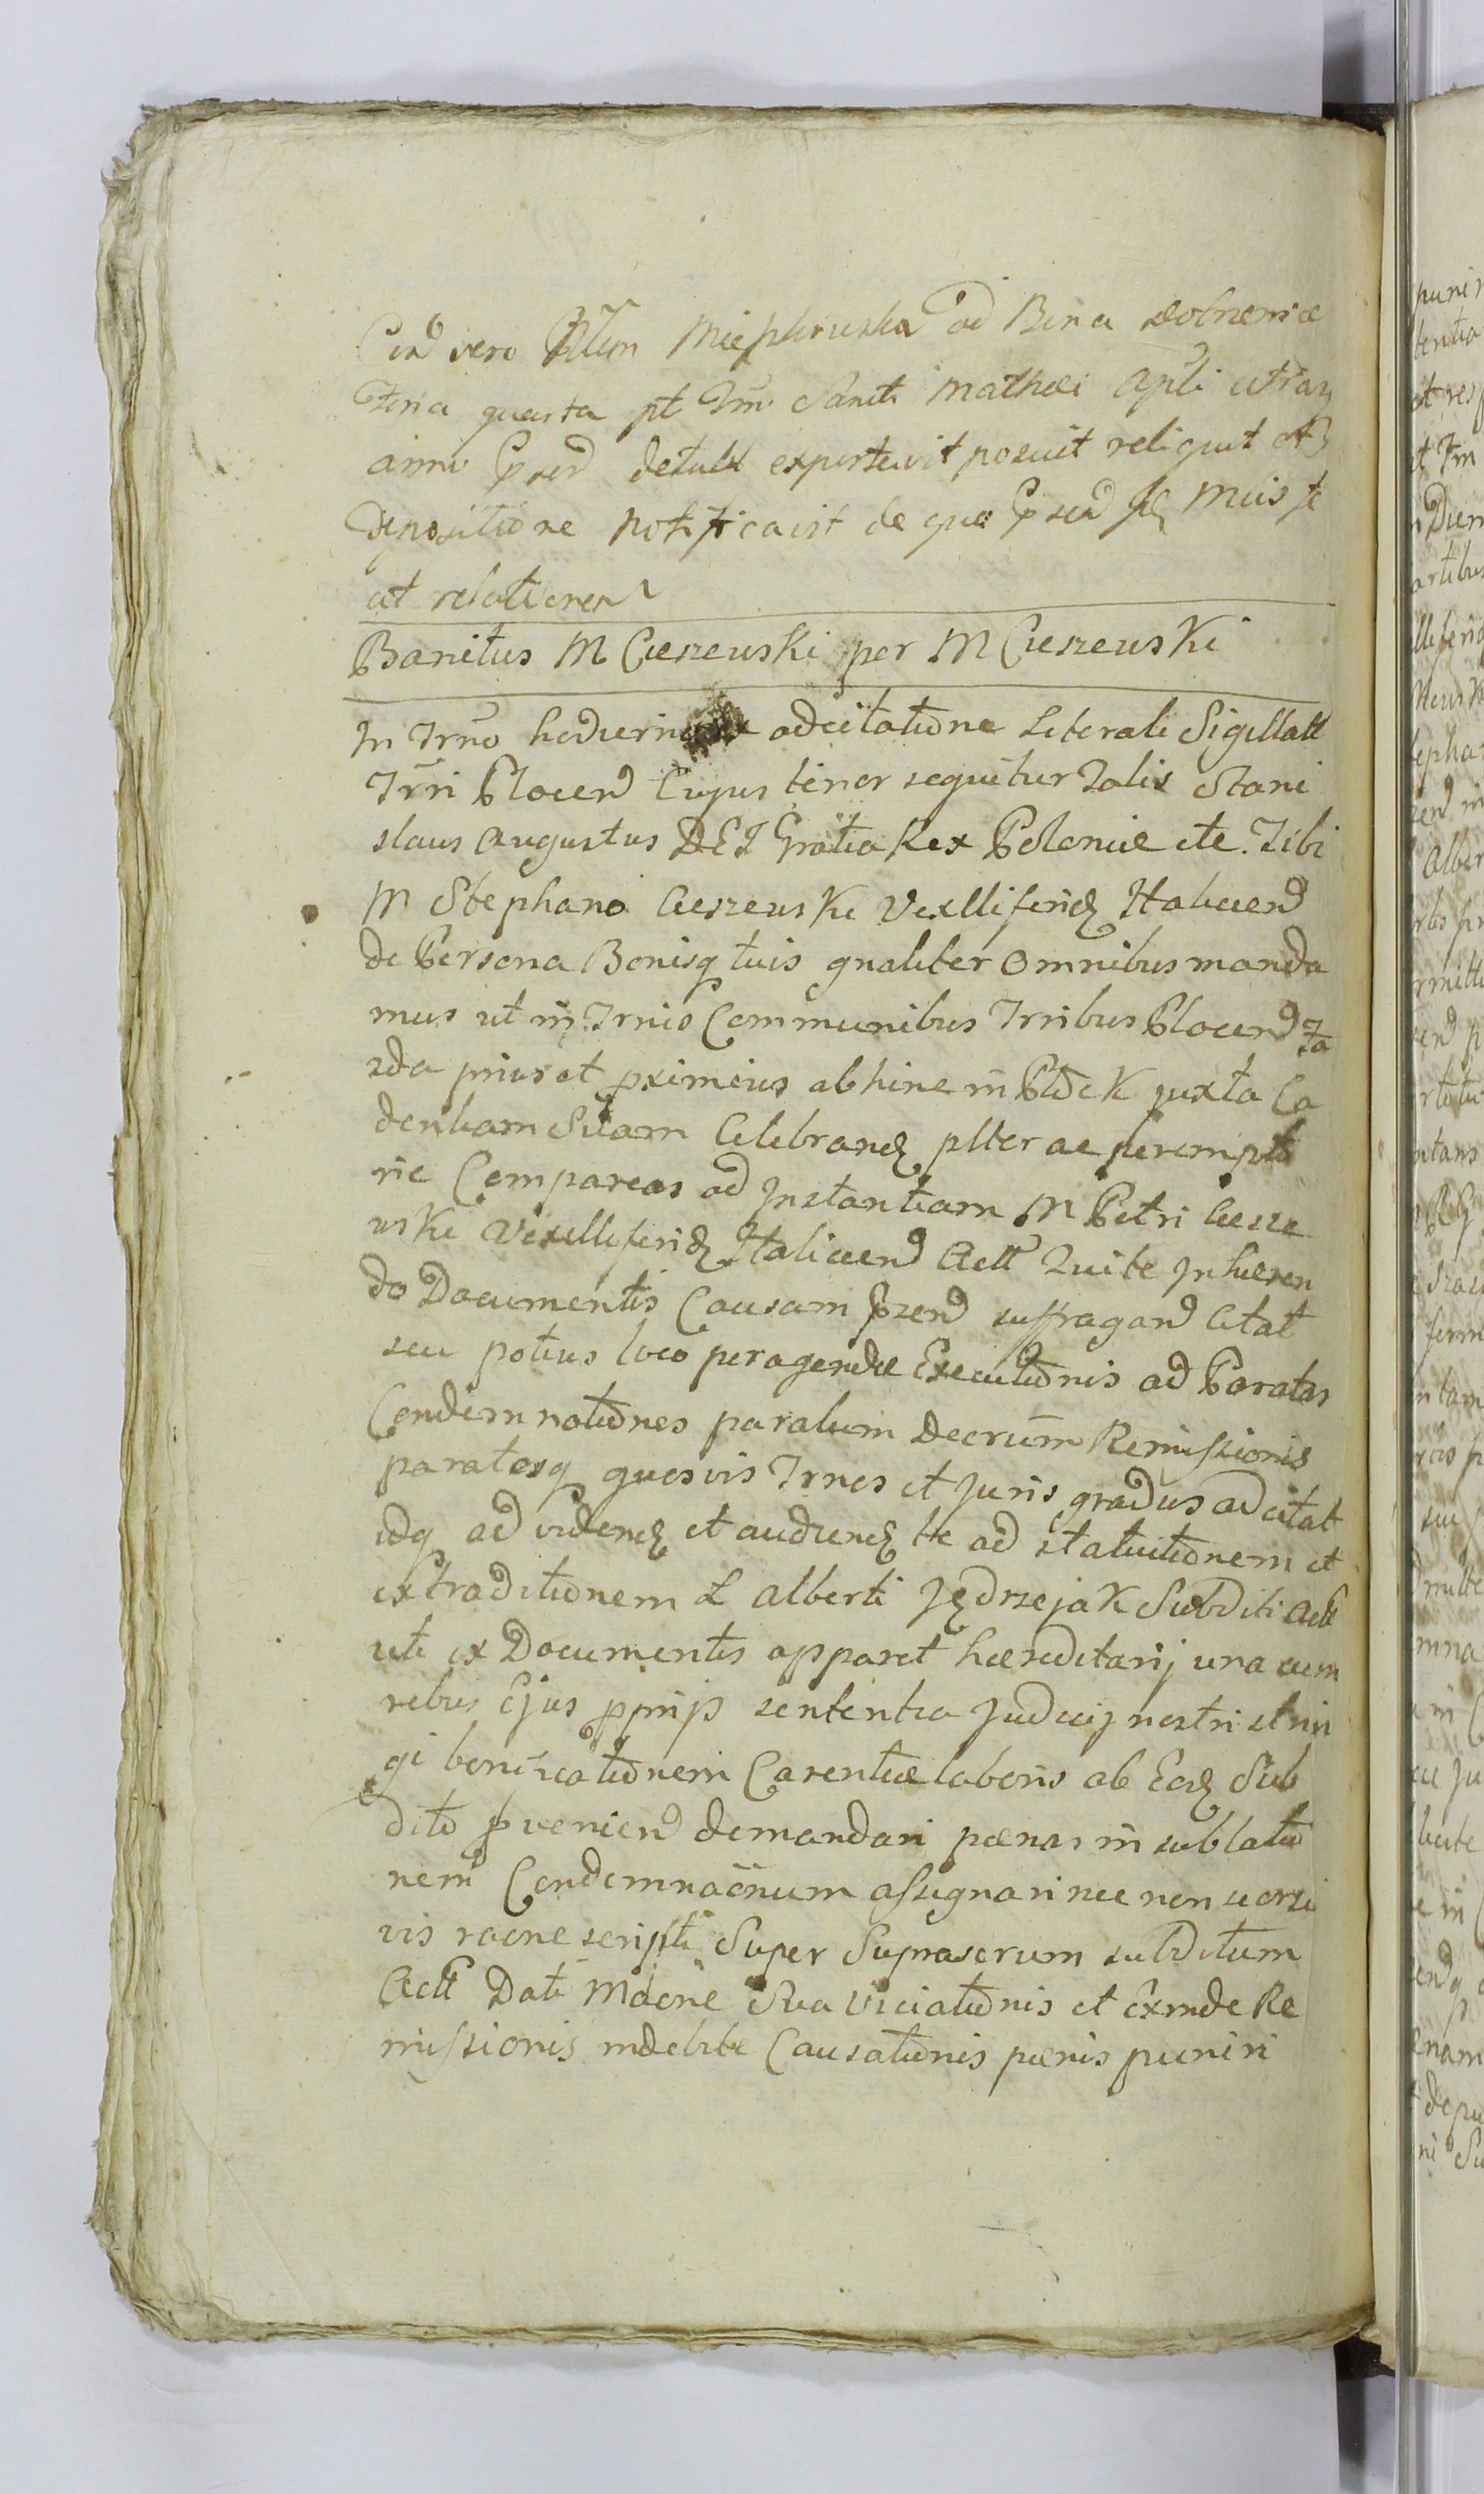 vero Miepkrucka ad Bina
Feria quarta pt Trm Sancti Mathæi Apli
anno detulit exportavit posuit reliquit
depositione notificavit de quo
relationem
Banitus M Cieszewski per M Cieszewski
In Trno hodierno ex adcitatione Literali Sigillatt
Trri Plocen Cujus tenor sequitur Talis Stani
slaus Augustus DEI Gratia Rex Poloniæ etc. Tibi
M Stephano Cieszewski Vexilliferidẽ Halicien
de Persona Bonisq tuis gnaliter Omnibus manda
mus ut in Trnis Communibus Trribus Plocen
zda prius et pximius abhinc in Plock juxta Ca
dentiam Suam Celebrandẽ plter ac perempto
rie Compareas ad Instantiam M Petri Ciesze
wski Vexilliferidẽ Haliciend Actt Qui te Inhæren
do Documentis Causam pzend suffragand Citat
seu potius loco peragendæ Executionis ad Paratas
Condemnationes paratum Decrum Remissionis
paratosq quosvis Trnos et Juris gradus adcitat
idq ad videndẽ et audiendẽ te ad statuitionem et
extraditionem L Alberti Jędrzejak Subditi Actt
uti ex Documentis apparet hæreditarij una cum
rebus Ejus pprijs sententia Judicij nostri strin
gi bonificationem Carentiæ laboris ab Eodẽ Sub
dito pvenien demandari pænas in sublatio
nem Condemnaõnum assignari nec non
vis raõne scripti Super Suprascrum subditum
Actt Dati Suæ Viciationis et Exinde Re
missionis indebite Causationis pænis puniri